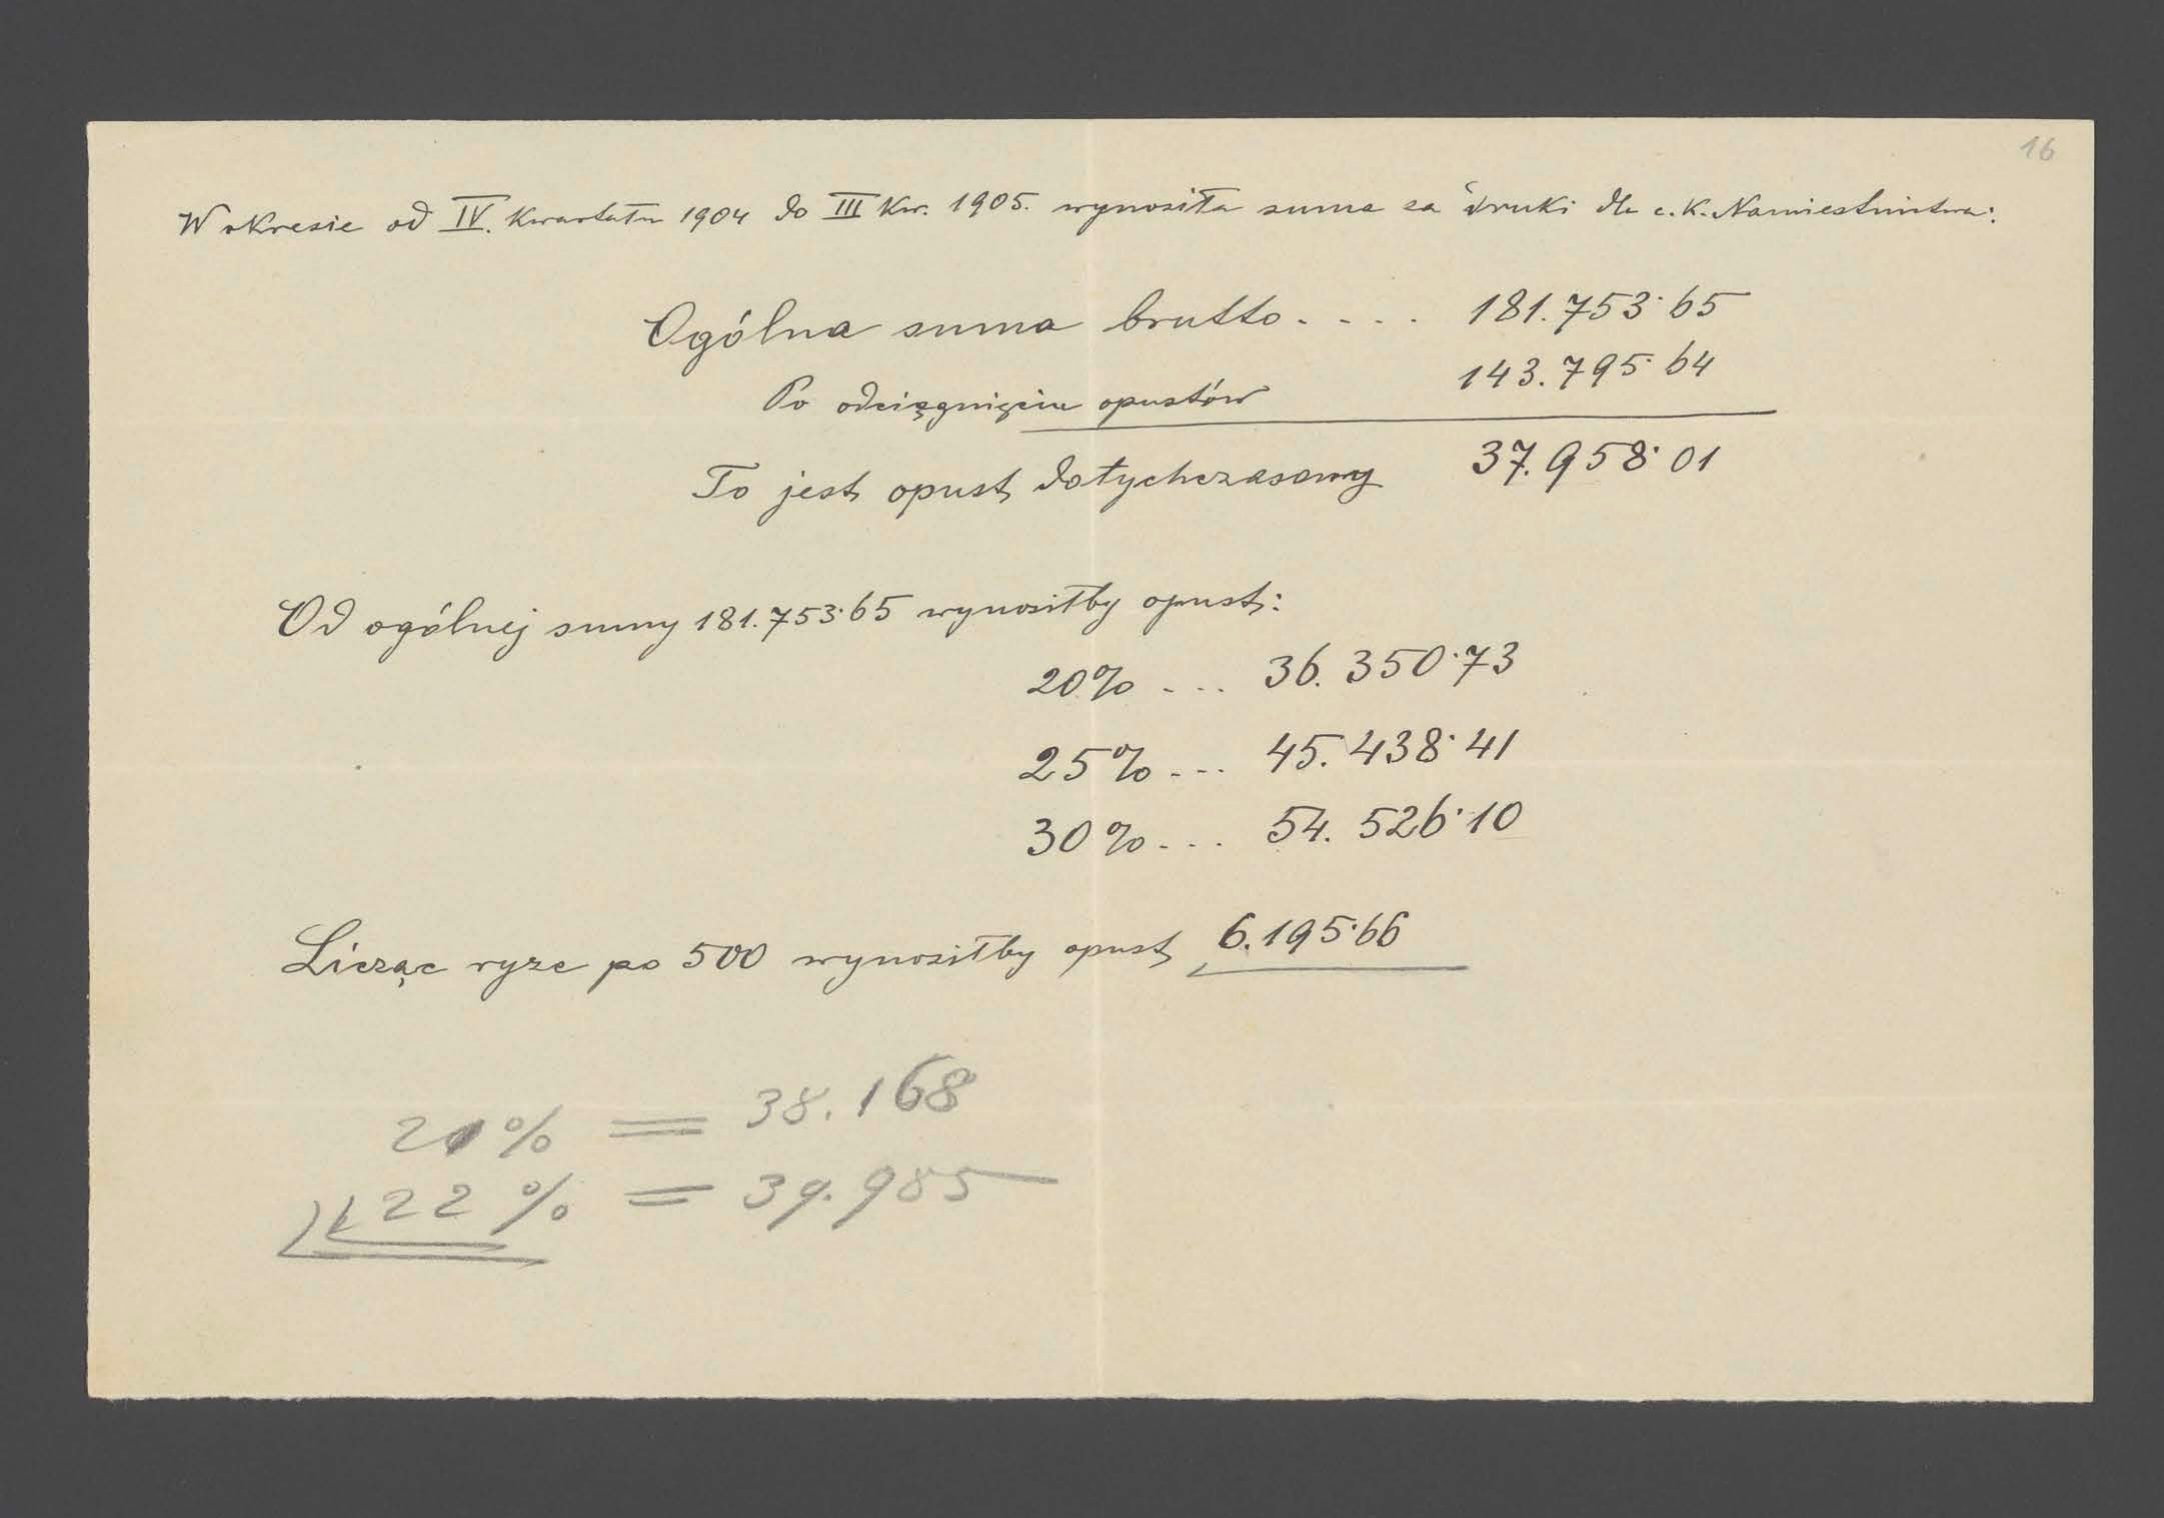 16
W okresie od IV. Kwartału 1904 do III Kw. 1905. wynosiła suma za druki dla c. K. Namiestnictwa:
Ogólna suma brutto.... 181.753·65
Po odciągnięciu opustów 143.795·64
To jest opust dotychczasowy 37.958·01
Od ogólnej sumy 181.753·65 wynosiłby opust:
20% ... 36.350·73
25% ... 45.438·41
30% ... 54.526·10
Licząc ryze po 500 wynosiłby opust 6.195·66
21% = 38.168
22% = 39.985